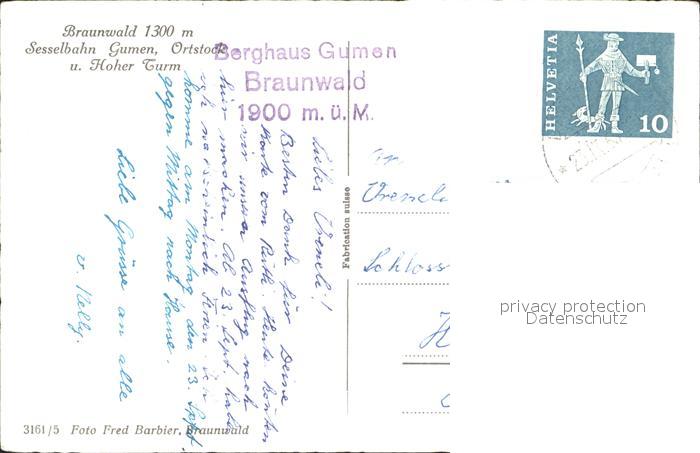 Braunwald 1300 m
Sesselbahn Gumen, Ortstock
u. Hoher Turm
Berghaus Gumen
Braunwald
1900 m. ü. M.
HELVETIA
10
Liebes Vreneli!
Besten Dank für Deine
Karte vom Rütli. Heute konnten
wir unser Ausflug nach
hier machen. Ab 23. Sept. habe
ich Ferien. Ich
komme am Montag, den 23. Sept.
gegen Mittag nach Hause.
Liebe Grüsse an alle
v. Nelly.
Fabrication suisse
Vreneli
Schloss
privacy protection
Datenschutz
3161/5 Foto Fred Barbier, Braunwald